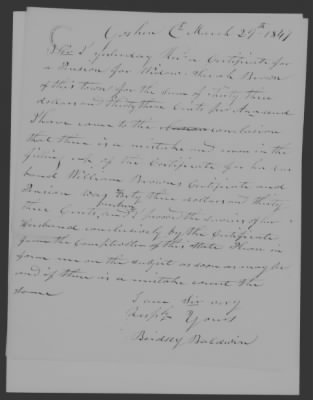 Goshen Ct March 29th 1841
Sir I yesterday Rec'd a Certificate for
a Pension for Widow Sarah Brown
of this town for the Sum of thirty three
dollars and thirty three Cents per Annum and
I have come to the conclusion
that there is a mistake and even in the
of the Certificate for her hus
band William Browns Certificate and
Pension was forty three dollars and thirty
three Cents and I further proved the Service of her
Husband conclusively by the Certificate
from the Comptroller of this State Please in
form me on the subject as soon as may be
and if there is a mistake correct the
same
I am Sir very
Respy Yours
Birdsey Baldwin